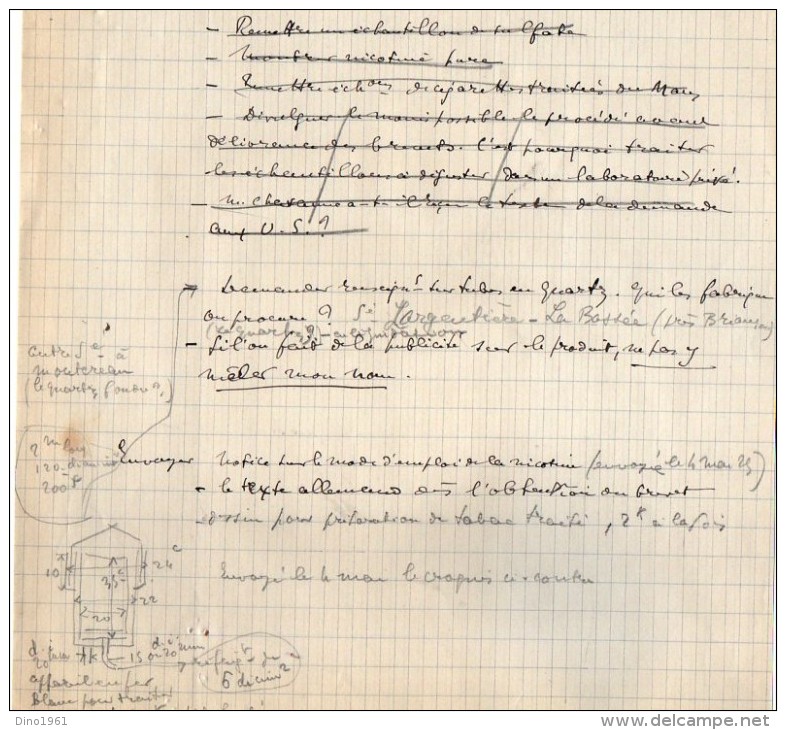 - Remettre un échantillon de sulfate
- Montrer nicotine pure
- Remettre échons de cigarettes traitées du Mans
- Divulguer le moins possible le procédé avant
délivrance des brevets. C'est pourquoi traiter
les échantillons à déguster dans un laboratoire privé.
- M. a-t-il reçu le texte de la demande
aux U.S.?
- Demander renseignts sur tubes en quartz. qui les fabrique
ou procure ? Sé l'argentière - La Bessée (près Briançon)
(le quartz ?)
- Si l'on fait de la publicité sur le produit, ne pas y
mêler mon nom.
autre Sé à
montereau
(le quartz fondu ?)
2m long
120
200
Envoyer notice sur le mode d'emploi de la nicotine (envoyée le 4 mai 25)
- le texte allemand dès l'obtention du brevet
- dessin pour préparation de tabac traité, 2k à la fois
Envoyé le 4 mai le croquis ci-contre
10
24c
35
20
22
15 ou 20
6 décim2
appareil en fer
blanc pour traiter
Dino1961
delcampe.net